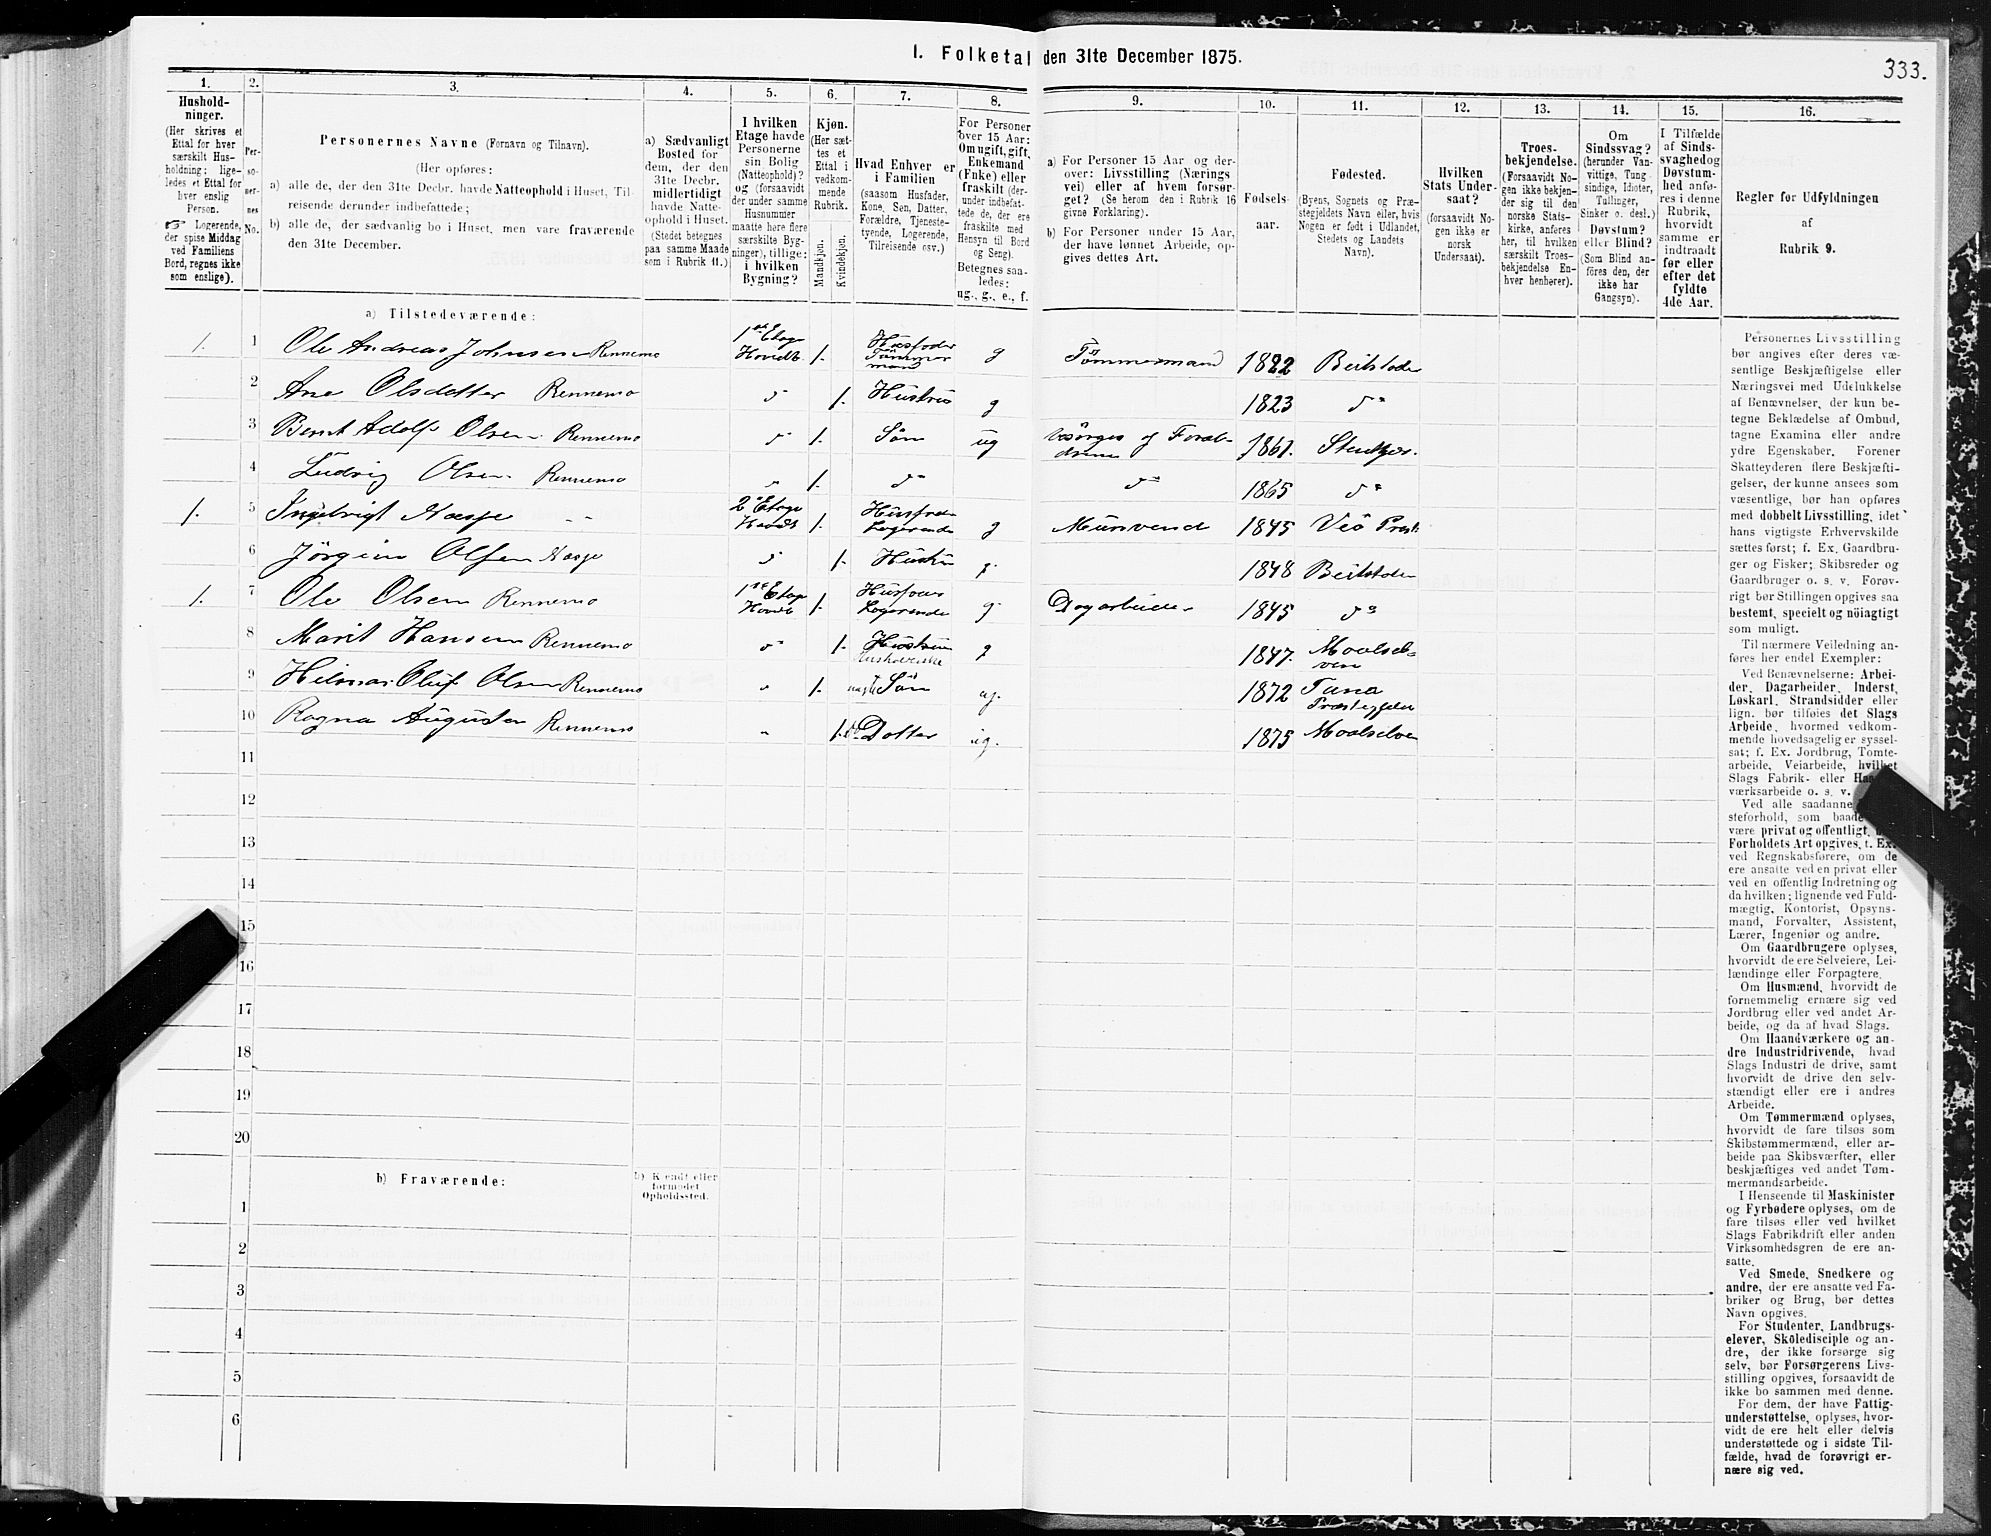 I. Folketal den 31te December 1875.
333.
1. 2. 3. 4. 5. 6. 7. 8. 9. 10. 11. 12. 13. 14. 15. 16.
Hushold-
ninger.
(Her skrives et
Ettal for hver
særskilt Hus-
holdning; lige-
ledes et Ettal for
hver enslig
Person.
☞ Logerende,
der spise Middag
ved Familiens
Bord, regnes ikke
som enslige).
Per-
so-
ner-
nes
No.
Personernes Navne (Fornavn og Tilnavn).
(Her opføres:
a) alle de, der den 31te Decbr. havde Natteophold i Huset, Til-
reisende derunder indbefattede;
b) alle de, der sædvanlig bo i Huset, men vare fraværende
den 31te December.
a) Sædvanligt
Bosted for
dem, der den
31te Decbr.
midlertidigt
havde Natte-
ophold i Huset.
(Stedet betegnes
paa samme Maade
som i Rubrik 11.)
I hvilken
Etage havde
Personerne
sin Bolig
(Natteophold)?
og (forsaavidt
der under samme
Husnummer
maatte høre flere
særskilte Byg-
ninger), tillige:
i hvilken
Bygning?
Kjøn.
(Her sæt-
tes et
Ettal i
vedkom-
mende
Rubrik.
Mandkjøn.
Kvindekjøn.
Hvad Enhver er
i Familien
(saasom Husfader,
Kone, Søn, Datter,
Forældre, Tjeneste-
tyende, Logerende,
Tilreisende osv.)
For Personer
over 15 Aar:
Om ugift, gift,
Enkemand
(Enke) eller
fraskilt (der-
under indbefat-
tede de, der ere
fraskilte med
Hensyn til Bord
og Seng).
Betegnes saa-
ledes:
ug., g., e., f.
a) For Personer 15 Aar og der-
over: Livsstilling (Nærings
vei) eller af hvem forsør-
get? (Se herom den i Rubrik 16
givne Forklaring).
b) For Personer under 15 Aar,
der have lønnet Arbeide, op-
gives dettes Art.
Fødsels-
aar.
Fødested.
(Byens, Sognets og Præ-
stegjeldets Navn eller, hvis
Nogen er født i Udlandet,
Stedets og Landets
Navn).
Hvilken
Stats Under-
saat?
(forsaavidt No-
gen ikke er
norsk
Undersaat).
Troes-
bekjendelse.
(Forsaavidt No-
gen ikke bekjen-
der sig til den
norske Stats-
kirke, anføres
her, til hvilken
særskilt Troes-
bekjendelse En-
hver henhører).
Om
Sindssvag?
(herunder Van-
vittige, Tung
sindige, Idioter,
Tullinger,
Sinker o. desl.)
Døvstum?
eller Blind?
(Som Blind an-
føres den, der
ikke har
Gangsyn).
I Tilfælde
af Sinds-
svaghed og
Døvstum-
hed anfø-
res i denne
Rubrik,
hvorvidt
samme er
indtraadt
før eller
efter det
fyldte
4de Aar.
Regler for Udfyldningen
af
Rubrik 9.
a) Tilstedeværende:
1. 1 Ole Andreas Johnsen Rennemo 1ste Etage Hovedb 1. Husfader Tømmer mand g Tömmermand 1822 Beitstaden
2 Ane Olsdatter Rennemo d 1. Hustru g 1823 do
3 Bernt Adolf Olsen Rennemo d 1. Søn ug forsörges af Foræl- drene 1861. Stenkjær.
4 Ludvig Olsen Rennemo d 1. do do 1865 do
1. 5 Ingebrigt Næsje 2 Etage Hovdb 1. Husfader Logerende g Mursvend 1845 Veö Præst.
6 Jörgine Olsen Næsje d 1. Hustru g. 1848 Beitstaden
1. 7 Ole Olsen Rennemo 1ste Etage Hovdb 1. Husfader Logerende g. Dagarbeider 1845 do
8 Marit Hansen Rennemo d 1. Hustru Husholderske g 1847. Maalsel- ven
9 Hilmar Oluf Olsen Rennemo 1. Sön ug. 1872 Tana Præstegjeld
10 Ragna Augusta Rennemo 1. Datter ug. 1875 Maalselven
11
12
13
14
15
16
17
18
19
20
b) Fraværende:
b) Kjendt eller
formodet
Opholdssted.
1
2
3
4
5
6
Personernes Livsstilling
bør angives efter deres væ-
sentlige Beskjæftigelse eller
Næringsvei med Udelukkelse
af Benævnelser, der kun be-
tegne Beklædelse af Ombud,
tagne Examina eller andre
ydre Egenskaber. Forener
Skatteyderen flere Beskjæfti-
gelser, der kunne ansees som
væsentlige, bør han opføres
med dobbelt Livsstilling, idet
hans vigtigste Erhvervskilde
sættes først; f. Ex. Gaardbru-
ger og Fisker; Skibsreder og
Gaardbruger o. s. v. Forøv-
rigt bør Stillingen opgives saa
bestemt, specielt og nöiagtigt
som muligt.
Til nærmere Veiledning an-
føres her endel Exempler:
Ved Benævnelserne: Arbei-
der, Dagarbeider, Inderst,
Løskarl, Strandsidder eller
lign. bør tilføies det Slags
Arbeide, hvormed vedkom-
mende hovedsagelig er syssel-
sat; f. Ex. Jordbrug, Tomte-
arbeide, Veiarbeide, hvilket
Slags Fabrik- eller
værksarbeide o. s. v.
Ved alle saadanne
steforhold, som baade
være privat og offentligt,
Forholdets Art opgives, t. Ex.
ved Regnskabsførere, om de
ere ansatte ved en privat eller
ved en offentlig Indretning og
da hvilken; lignende ved Fuld-
mægtig, Kontorist, Opsyns-
mand, Forvalter, Assistent,
Lærer, Ingeniør og andre.
Om Gaardbrugere oplyses,
hvorvidt de ere Selveiere, Lei-
lændinge eller Forpagtere.
Om Husmænd, hvorvidt de
fornemmelig ernære sig ved
Jordbrug eller ved andet Ar-
beide, og da af hvad Slags.
Om Haandværkere og an-
dre Industridrivende, hvad
Slags Industri de drive, samt
hvorvidt de drive den selv-
stændigt eller ere i andres
Arbeide.
Om Tømmermænd oplyses,
hvorvidt de fare tilsøs som
Skibstømmermænd, eller ar-
beide paa Skibsværfter, eller
beskjæftiges ved andet Tøm-
mermandsarbeide.
I Henseende til Maskinister
og Fyrbødere oplyses, om de
fare tilsøs eller ved hvilket
Slags Fabrikdrift eller anden
Virksomhedsgren de ere an-
satte.
Ved Smede, Snedkere og
andre, der ere ansatte ved Fa-
briker og Brug, bør dettes
Navn opgives.
For Studenter, Landbrugs-
elever, Skoledisciple og an-
dre, der ikke forsørge sig
selv, bør Forsørgerens Livs-
stilling opgives, forsaavidt de
ikke bo sammen med denne.
For dem, der have Fattig-
understøttelse, oplyses, hvor-
vidt de ere helt eller delvis
understøttede og i sidste Til-
fælde, hvad de forøvrigt er-
nære sig ved.